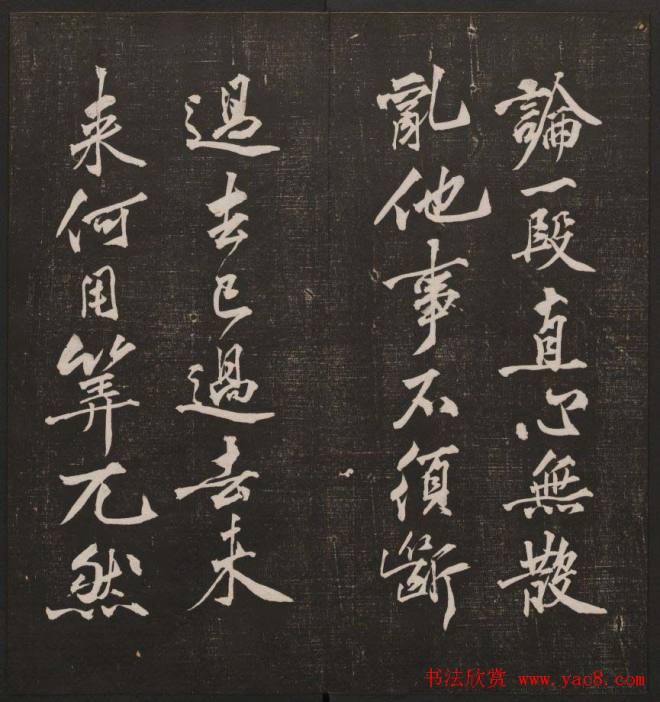 論一段直心無散
亂他事不須斷
過去已過去未
来何用筭兀然
书法欣赏 www.yac8.com